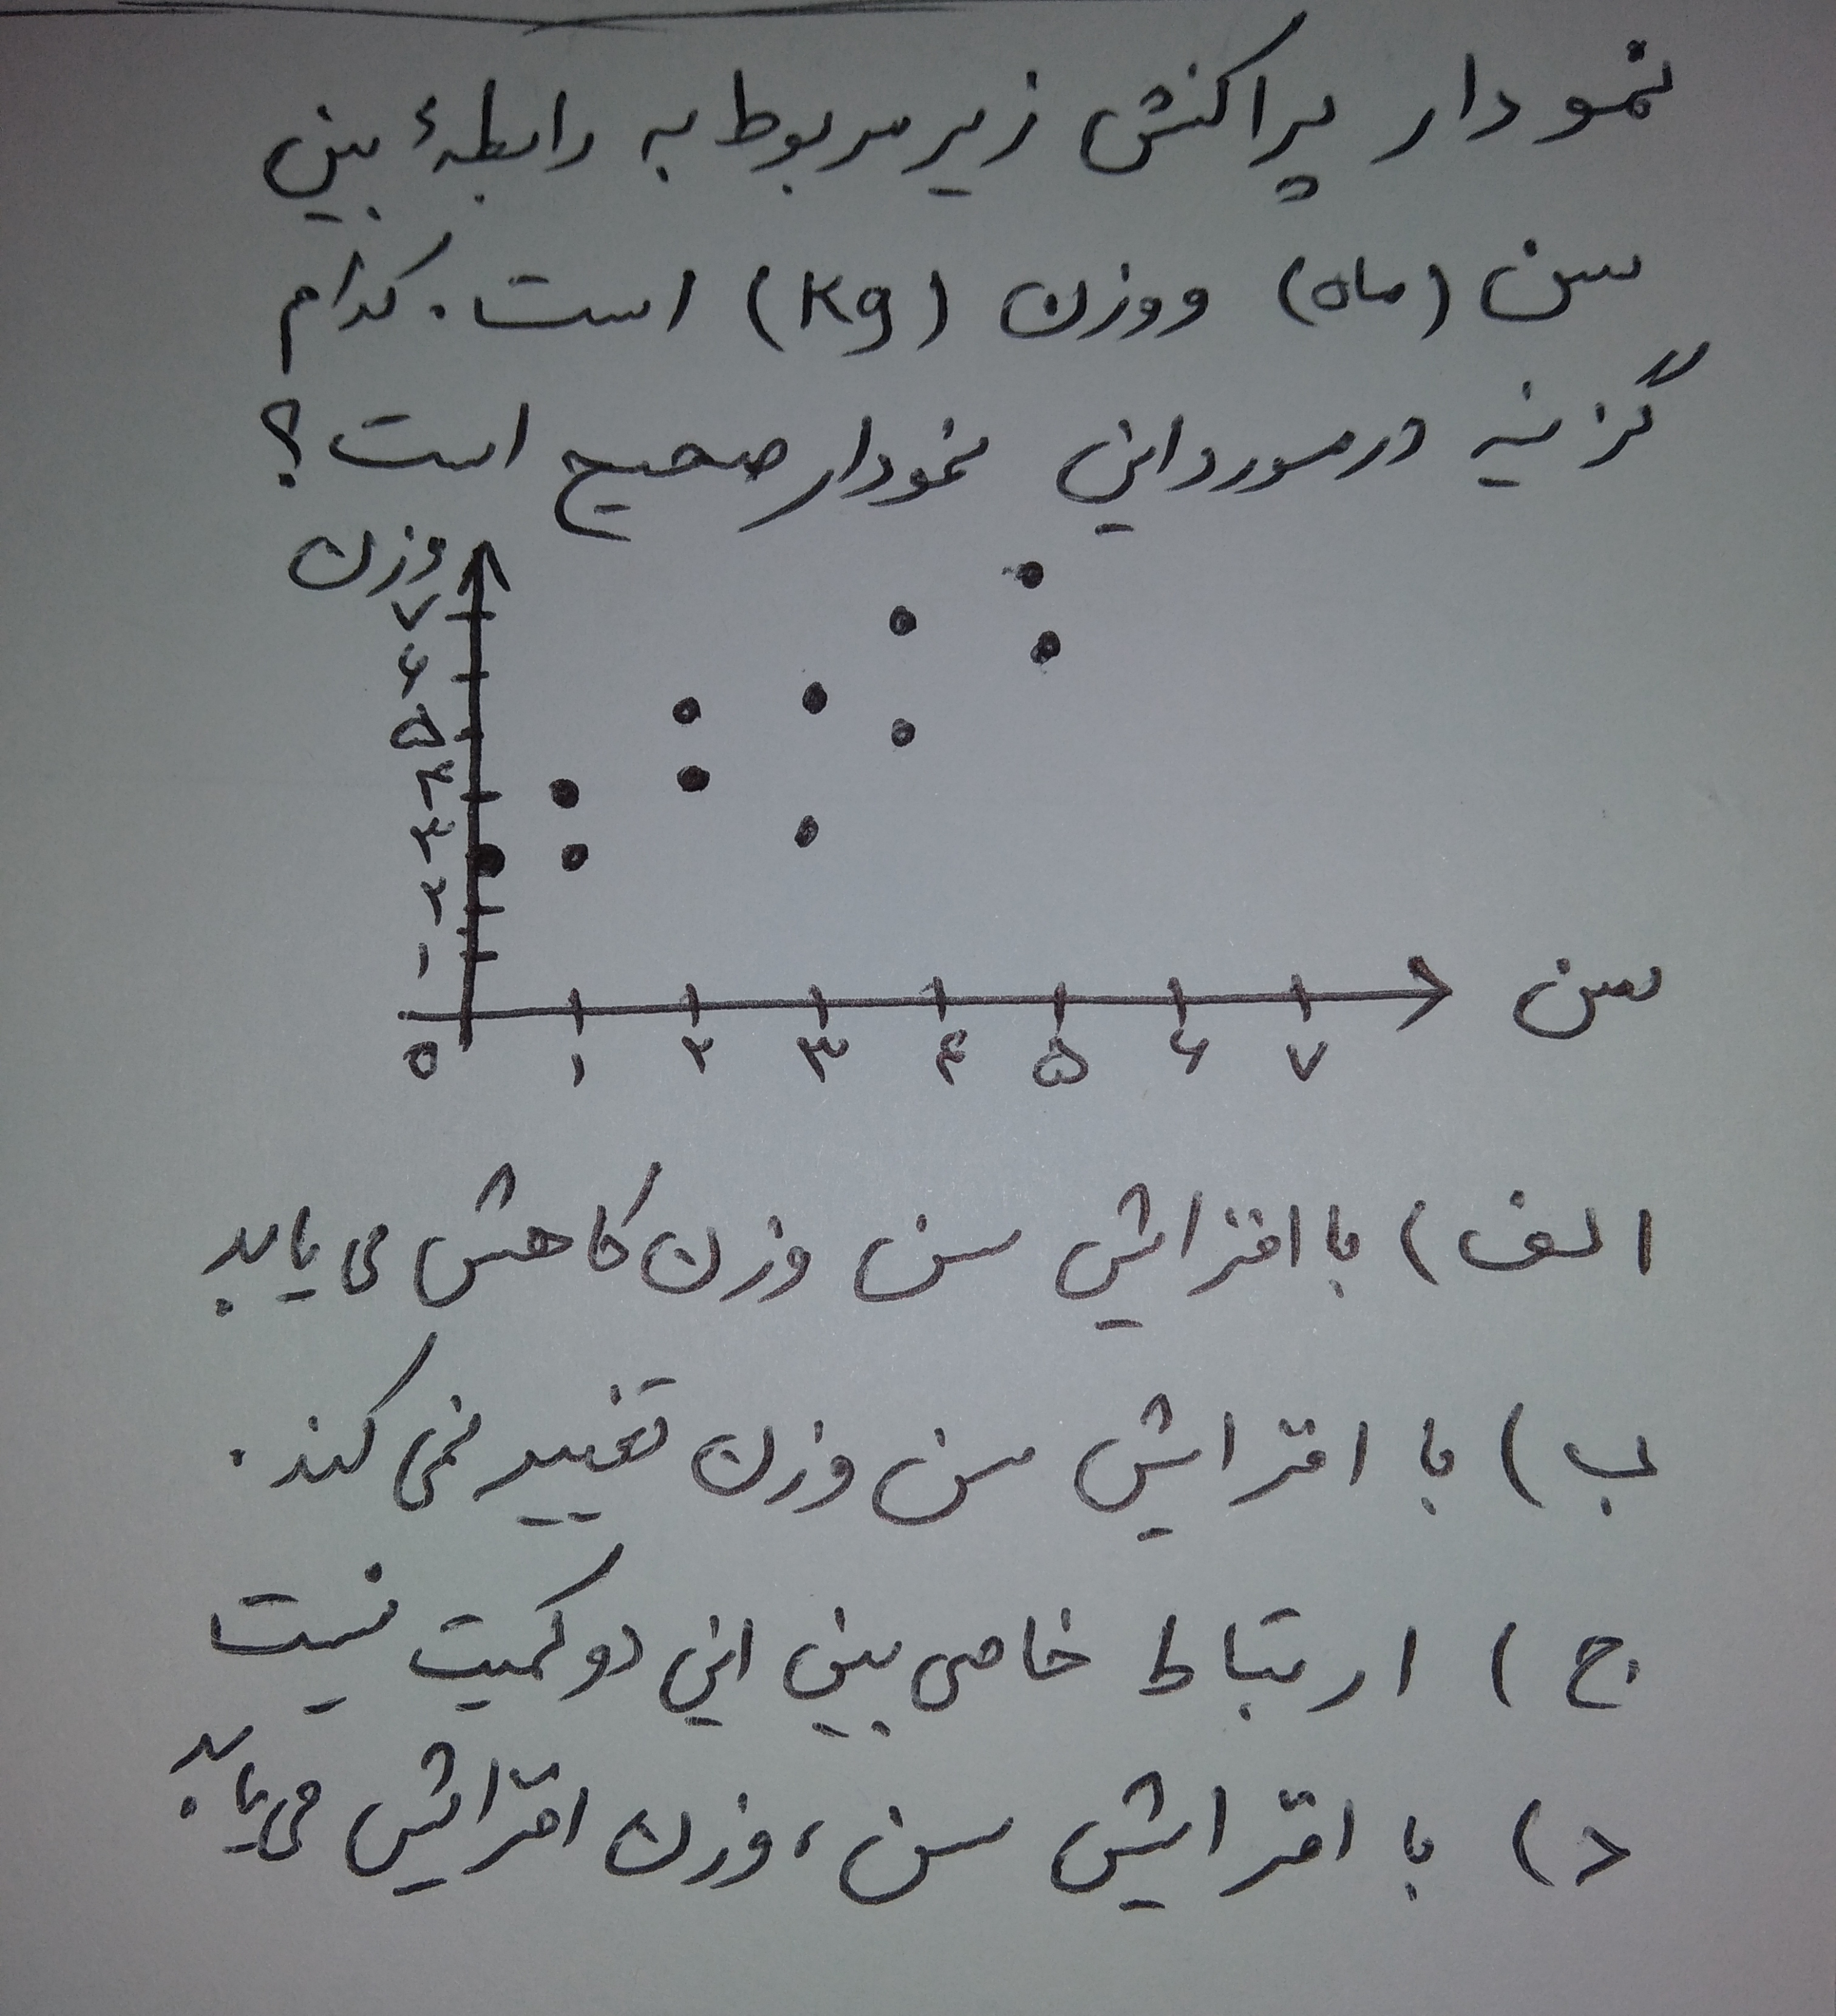 نمودار پراکنش زیر مربوط به رابطهٔ بین
سن (ماه) و وزن (Kg) است. کدام
گزینه در مورد این نمودار صحیح است؟
وزن
۷
۶
۵
۴
۳
۲
۱
سن
۰ ۱ ۲ ۳ ۴ ۵ ۶ ۷
الف) با افزایش سن وزن کاهش می یابد
ب) با افزایش سن وزن تغییر نمی کند.
ج) ارتباط خاصی بین این دو کمیت نیست
د) با افزایش سن، وزن افزایش می یابد